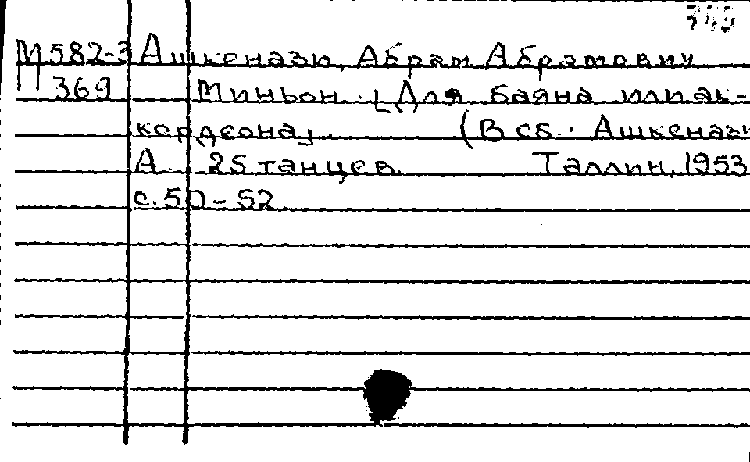 М 582-3 Ашкенази, Абрам Абрамович
369 Миньон. [Для баяна или ак-
кордеона]. (В сб. Ашкенази
А. 25 танцев. Таллин, 1953
с. 50-52